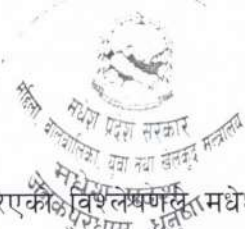 मधेश प्रदेश सरकार
महिला, बालबालिका, युवा तथा खेलकुद मन्त्रालय
रएको विश्लेषणले मधेश
मधेश प्रदेश
जनकपुरधाम, धनुषा